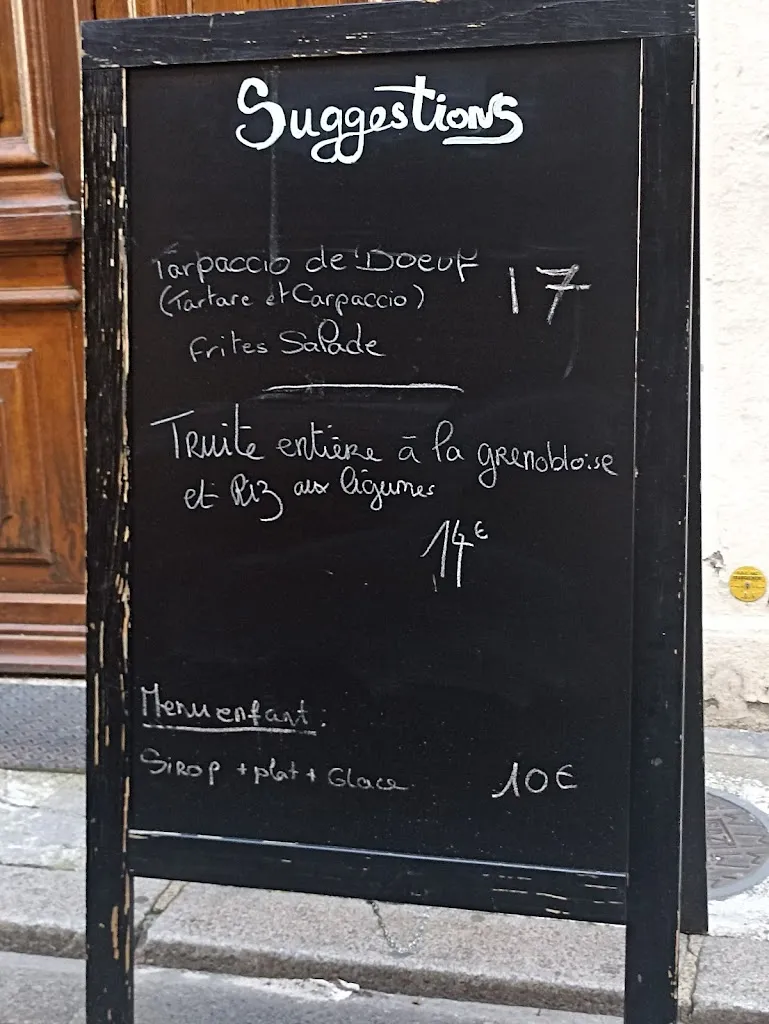 Suggestions
Tarpaccio de Boeuf 17
(Tartare et Carpaccio)
frites Salade
Truite entière à la grenobloise
et Riz aux légumes
14€
Menu enfant :
Sirop + plat + Glace 10€